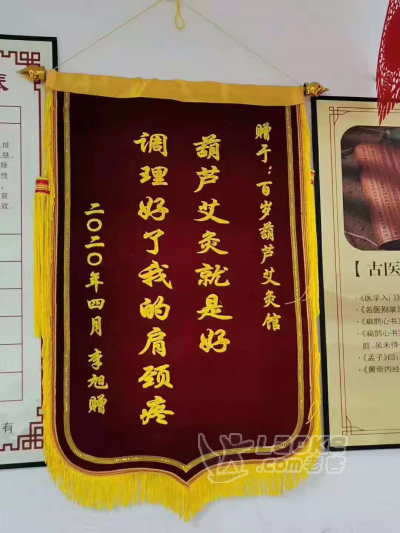 赠于：百岁葫芦艾灸馆
葫芦艾灸就是好
调理好了我的肩颈疼
二〇二〇年四月 李旭赠
【古医
·《医学入门
·《名医别录
·《扁鹊心书
·《扁鹊心书
·《孟子》曰：
·《黄帝内经
有
LOOKE
.com老客